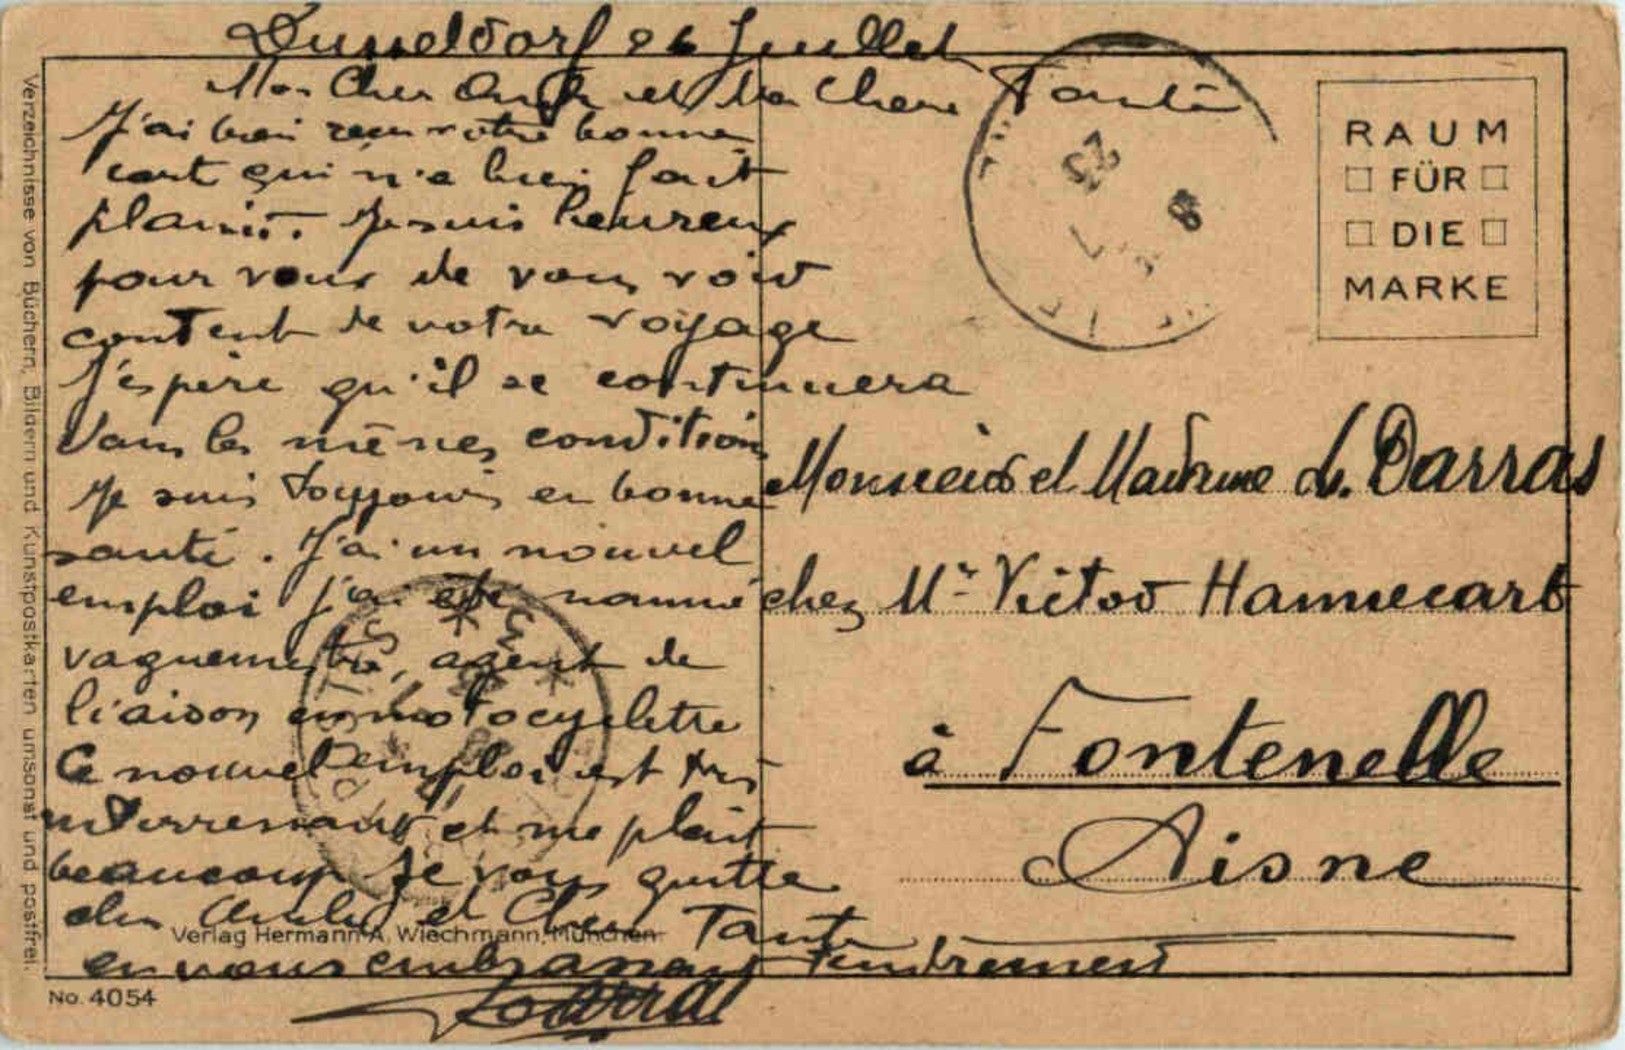 Dusseldorf 26 Juillet
Mon Cher Oncle et Ma Chere Tante
J'ai bien recu votre bonne
cart qui m'a bien fait
plaisir. Je suis heureux
pour vous de vous voir
content de votre voyage
J'espère qu'il se continuera
dans les mêmes conditions
Je suis toujours en bonne
santé. J'ai un nouvel
emploi j'ai été nommé
vaguemestre, agent de
liaison en motocyclette
Ce nouvel emploi est très
interressant et me plait
beaucoup Je vous quitte
cher Oncle et Chere Tante
en vous embrassant tendrement
Darras
RAUM
FÜR
DIE
MARKE
Monsieur et Madame L. Darras
chez Mr Victor Hannecart
à Fontenelle
Aisne
Verlag Hermann A. Wiechmann, München
No. 4054
Verzeichnisse von Büchern, Bildern und Kunstpostkarten umsonst und postfrei.